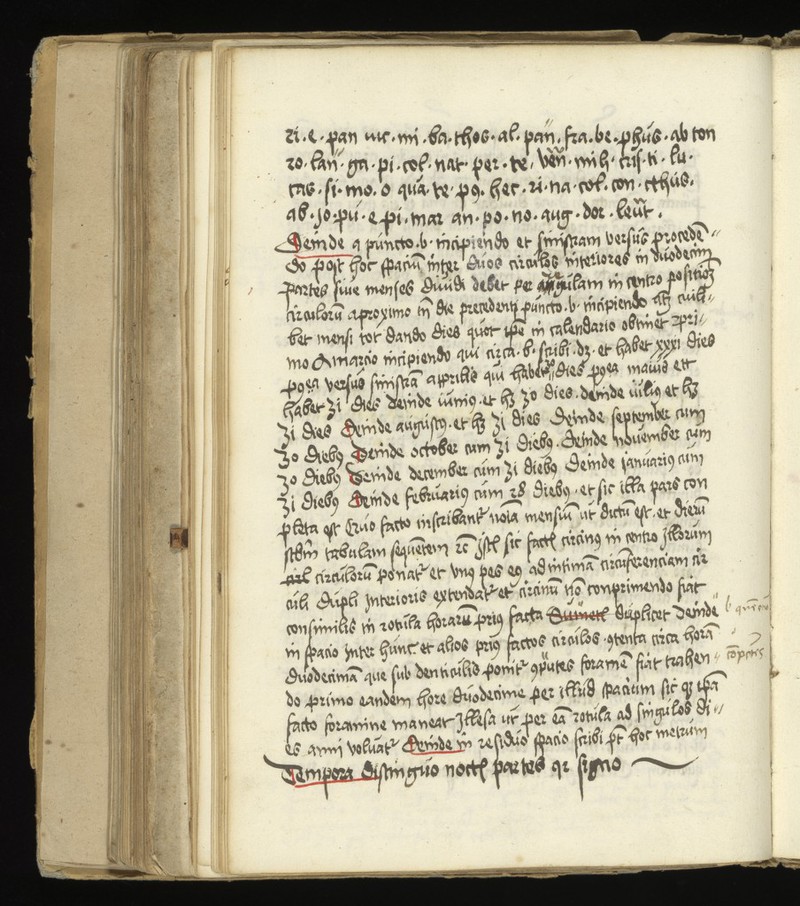 ri · e · pan vic · mi · ba · thos · al · pan · fra · be · phūs · ab ton
ro · lan · ga · pi · col · nat · per · te · ven · mih · cris · ti · lu ·
cas · si · mo · o qua · te · po9 · hec · ri · na · col · con · cthūs ·
ab · Jo · pu · e pi · mar an · po · no · aug · dor · leūt ·
Deinde a puncto · b · incipiendo et sinistram versus proceden-
do post hoc spaciū inter duos circulos interiores in duodecim
partes siue menses diuidi debet per regulam in centro
circulorū a proximo die precedenti puncto · b · incipiendo cuili-
bet mensi tot dando dies quot ipe in calendario obtinet pri-
mo a marcio incipiendo qui circa · b · scribi dz · et habet xxxi dies
postea versus sinistrā aprilis qui habet 30 dies postea maius ett
habet 31 dies deinde iunius · et hz 30 dies · deinde iulius et hz
31 dies Deinde augustus · et hz 31 dies Deinde september cum
30 diebus Deinde october cum 31 diebus · Deinde nouember cum
30 diebus Deinde december cum 31 diebus Deinde ianuarius cum
31 diebus Deinde februarius cum 28 diebus · et sic illa pars con
pleta est Quo facto inscribantr noīa mensiū ut dictū est · et dierū
scdm tabulam sequentem sic circinus in centro illorum
circulorū ponatr et vnus pes eius ad intimā circūferenciam cir
culi dupli interioris extendatr et circinū nō conprimendo fiat
consimilis in rotula horarū prius facta duplicet deinde
in spacio inter hunc et alios prius factos circulos circa horā
duodecimā que sub denticulis ponitr foramē fiat trahen-
do primo eandem hore duodecime per illud spacium sic qz ipā
facto foramine maneat illesa ut per eā rotula ad singulos di-
es anni voluatr Deinde in residuo spacio scribi pt hoc metrum
Tempora distinguo noctis partes qz signo